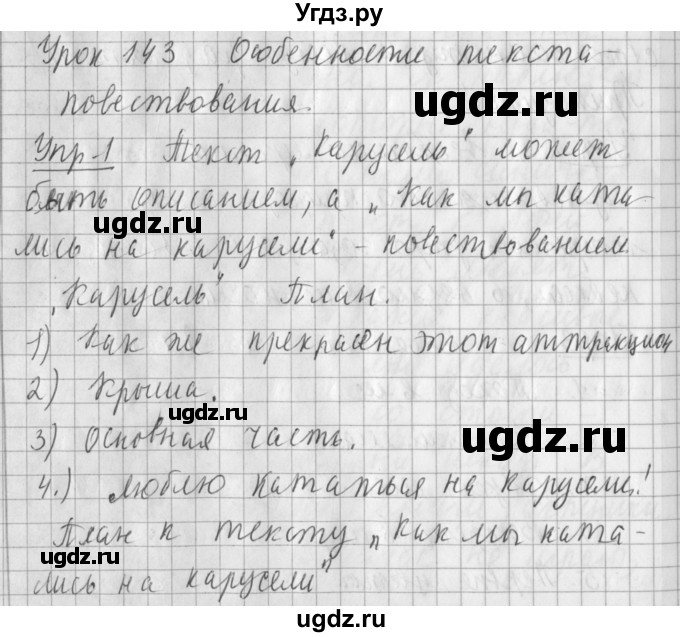 Угдз.ру
Урок 143 Особенности текста-
повествования.
ugdz.ru
Упр-1 Текст „Карусель“ может
быть описанием, а „Как мы ката-
ugdz.ru
лись на карусели“ - повествованием
„Карусель“ План.
1) Как же прекрасен этот аттракцион
2) Крыша.
ugdz.ru
3) Основная часть.
ugdz.ru
4.) люблю кататься на карусели!
План к тексту „Как мы ката-
ugdz.ru
лись на карусели“
ugdz.ru